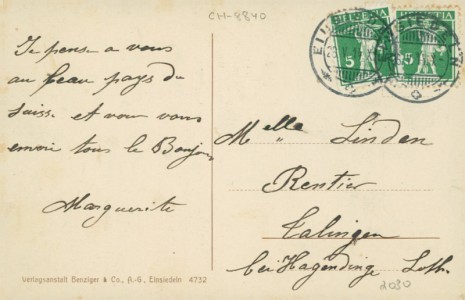 CH-8840
HELVETIA
5
HELVETIA
5
EINSIEDELN
Je pense a vous
au beau pays du
Suisse et vour vous
envoie tous le Bonjour
Marguerite
Melle Linden
Rentier
Talingen
bei Hagendinge Loth.
2030
Verlegsanstalt Benziger & Co., A.-G., Einsiedeln 4732